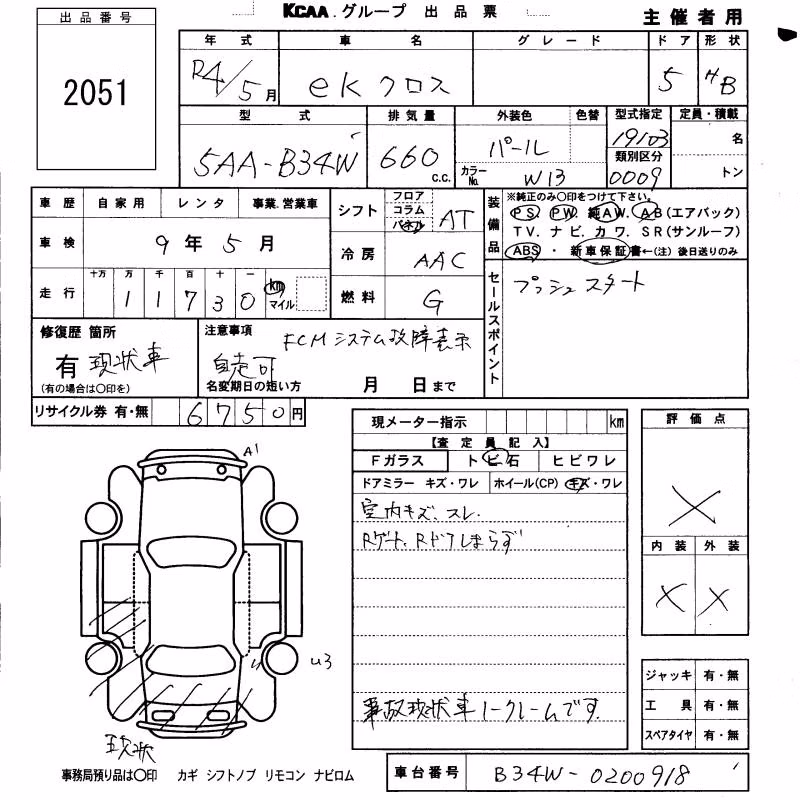 出品番号
2051
KCAA.グループ 出品票
主催者用
年式 車名 グレード ドア 形状
R4/5月 eKクロス 5 HB
型式 排気量 外装色 色替 型式指定 定員・積載
5AA-B34W 660 c.c. パール 19103 名
カラーNo. W13 類別区分 0009 トン
車歴 自家用 レンタ 事業.営業車
車検 9年5月
走行 十万 万 千 百 十 一
11730 km マイル
シフト フロア コラム パネル AT
冷房 AAC
燃料 G
装備品 ※純正のみ○印をつけて下さい。
PS. PW. 純AW. AB(エアバック)
TV. ナビ. カワ. SR(サンルーフ)
ABS・新車保証書←(注)後日送りのみ
セールスポイント プッシュスタート
修復歴 箇所
有 現状車
(有の場合は○印を)
注意事項 FCMシステム故障表示
自走可
名変期日の短い方 月 日まで
リサイクル券 有・無 6750円
現メーター指示 km
【査定員記入】
Fガラス トビ石 ヒビワレ
ドアミラー キズ・ワレ ホイール(CP) キズ・ワレ
室内キズ、スレ.
Rゲート、Rドアしまらず
事故現状車ノークレームです.
評価点
X
内装 外装
X X
ジャッキ 有・無
工具 有・無
スペアタイヤ 有・無
A1
U3
現状
事務局預り品は○印 カギ シフトノブ リモコン ナビロム
車台番号 B34W-0200918